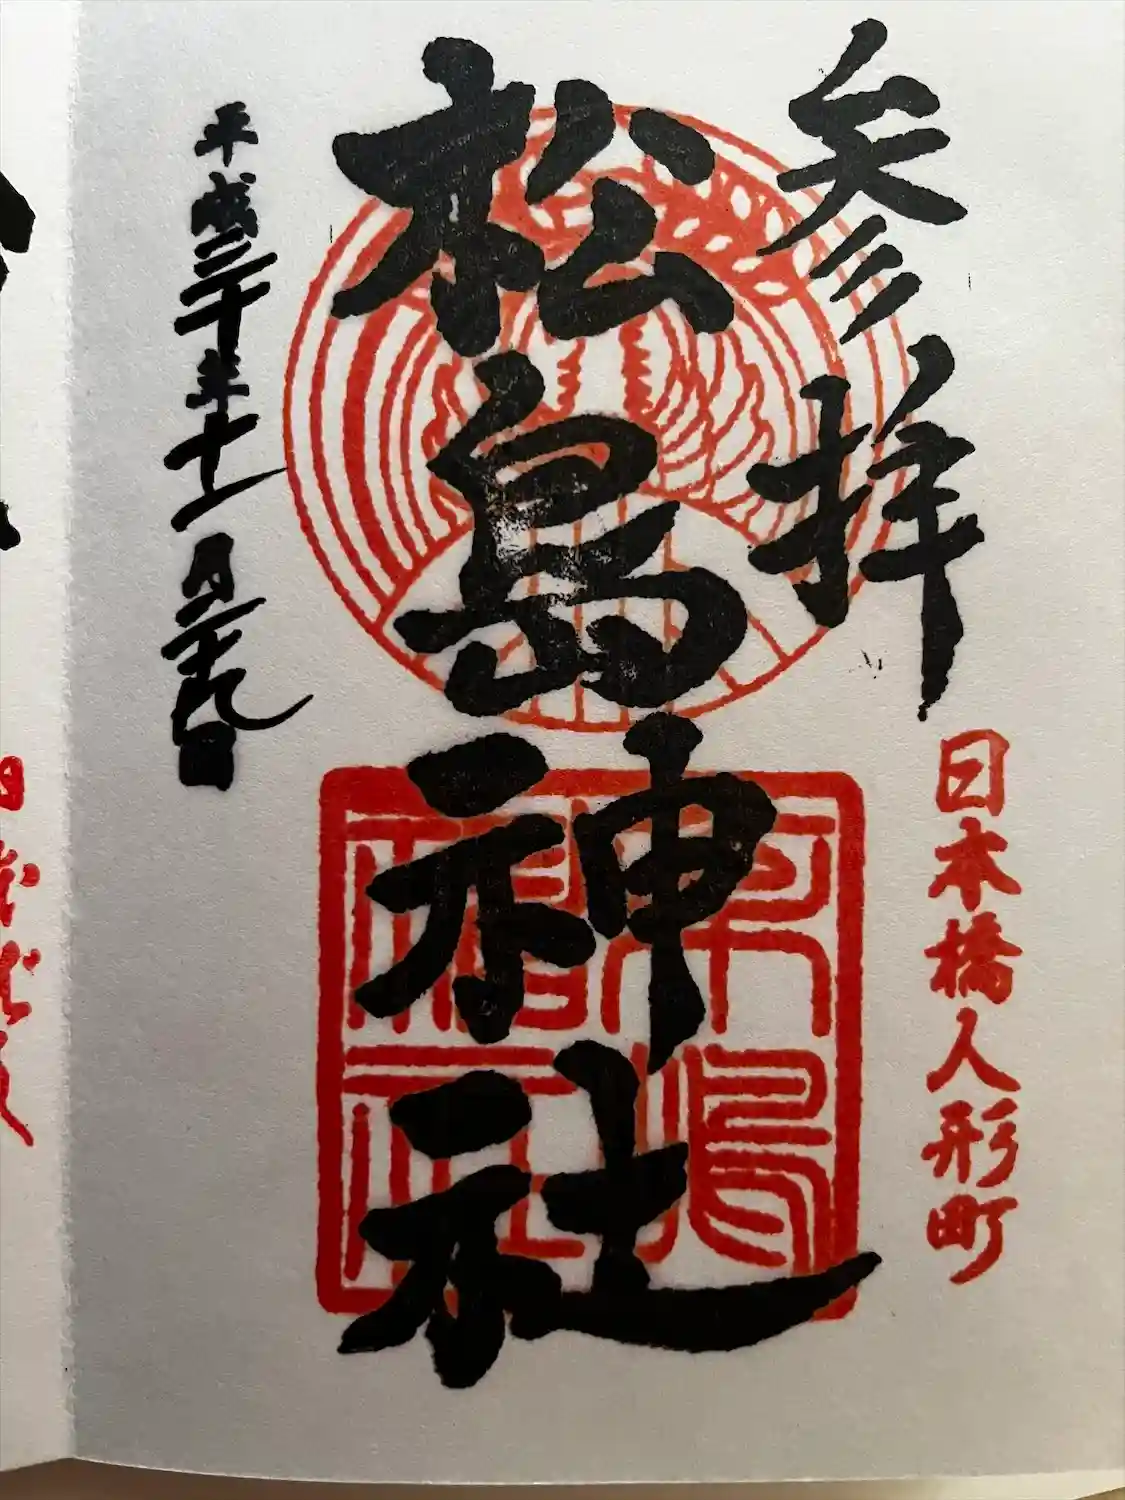 参拝
日本橋人形町
松島神社
平成三十年十一月二十九日